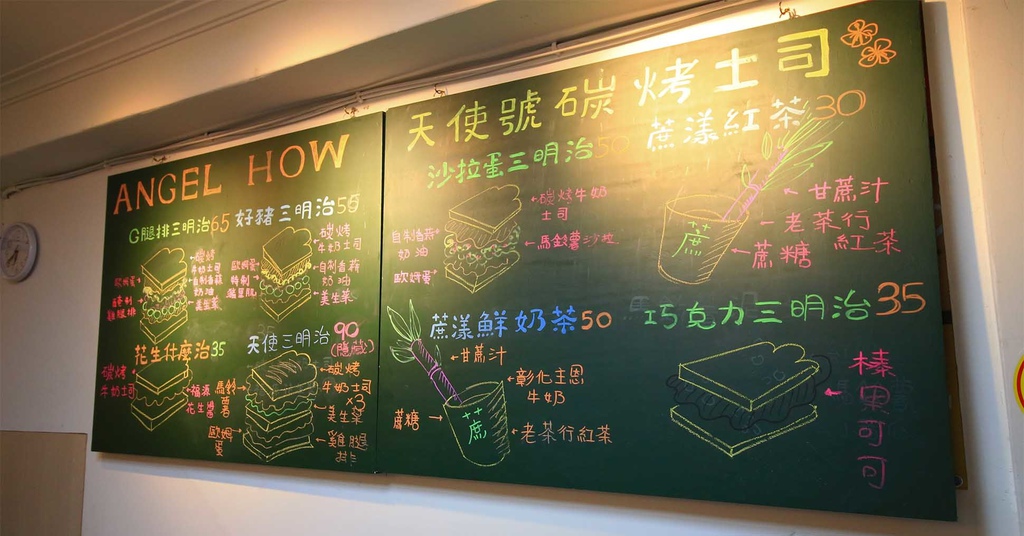 ANGEL HOW
G腿排三明治65
碳烤
牛奶土司
自制香蒜
奶油
美生菜
歐姆蛋
雞腿排
好豬三明治50
碳烤
牛奶土司
自制香蒜
奶油
美生菜
歐姆蛋
特制
花生什麼治35
碳烤
牛奶土司
福源
花生醬
天使三明治90
(隱藏)
碳烤
牛奶土司
×3
美生菜
雞腿
排
馬鈴
薯
歐姆
蛋
天使號碳烤土司
沙拉蛋三明治50
碳烤牛奶
土司
自制香蒜
奶油
馬鈴薯沙拉
歐姆蛋
蔗漾紅茶30
甘蔗汁
老茶行
紅茶
蔗糖
蔗
蔗漾鮮奶茶50
甘蔗汁
彰化主恩
牛奶
蔗糖
蔗
老茶行紅茶
巧克力三明治35
榛果可可